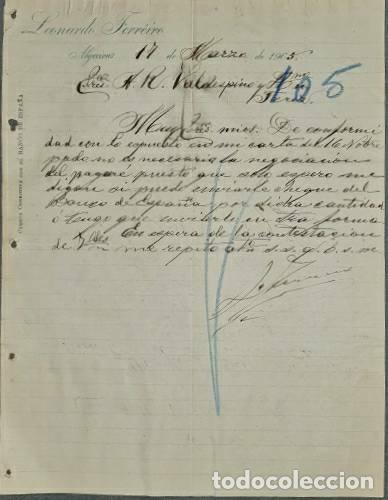 Leonardo Ferreiro
Algeciras 17 de Marzo de 1905
105
Sres. A. R. Valdespino y Hno
Jerez
CUENTA CORRIENTE CON EL BANCO DE ESPAÑA
Muy Sres. mios. De conformi
dad con lo espuesto en mi carta del 16 Nobre
pado no es necesaria la negociacion
del pagaré puesto que solo espero me
digan si puedo enviarle cheque del
Banco de España por dicha cantidad
ó tengo que enviarle en otra forma
En espera de la contestacion
de Vdes. me repito afmo s. s. q. b. s. m
todocoleccion
todocoleccion.net